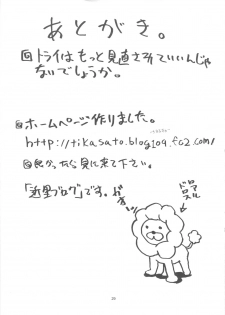 あとがき。
回ドライはもっと見直されていいんじゃ
ないでしょうか。
回ホームページ作りました。
http://tikasato.blog109.fc2.com/
回良かったら見に来て下さい。
「近里ブログ」です。